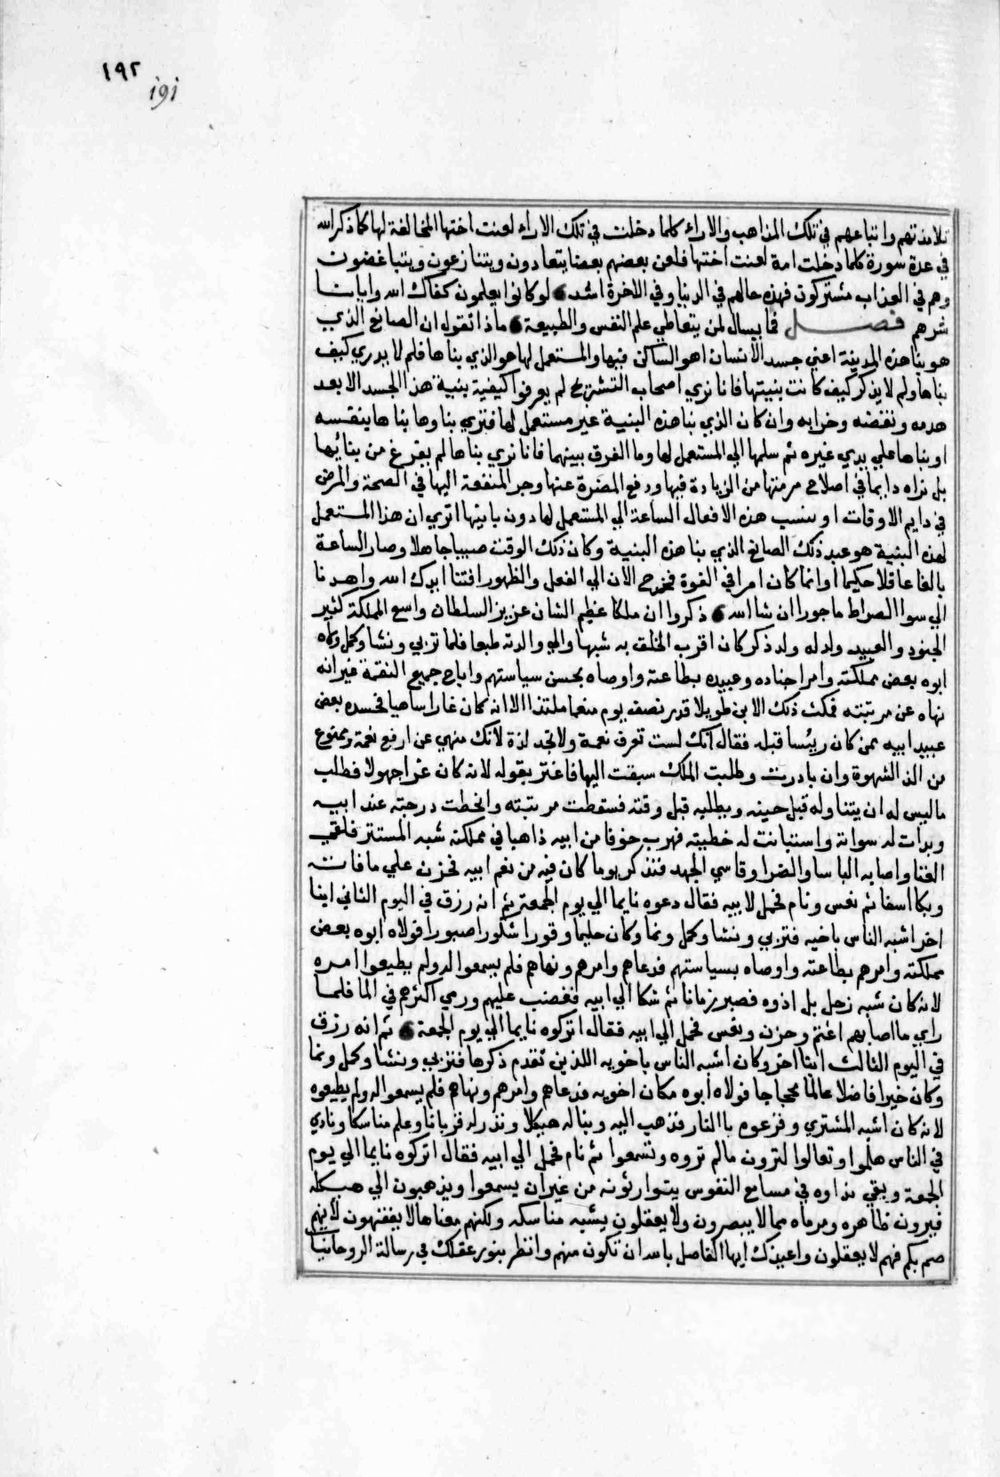 ١٩٢
تلامذتهم واتباعهم في تلك المذاهب والاراء كلما دخلت في تلك الاراء لعنت اختها المخالفة لها كما ذكر الله
في عدة سورة كلما دخلت امة لعنت اختها فلعن بعضهم بعضا يتعادون ويتنازعون ويتباغضون
وهم في العذاب مشتركون فهذه حالهم في الدنيا وفي اللاخرة اشد لو كانوا يعلمون كفاك الله وايانا
شرهم فصل فما يسال لمن يتعاطي علم النفس والطبيعة ماذا تقول ان الصانع الذي
هو بنا هذه المدينة اعني جسد الانسان اهو الساكن فيها والمستعمل لها هو الذي بناها فلم لا يدري كيف
بناها ولم لا يذكر كيف كانت بنيتها فانا نري اصحاب التشريح لم يعرفوا كيفية بنية هذا الجسد الا بعد
هدمه ونقضه وخرابه وان كان الذي بنا هذه البنية غير مستعمل لها فتري بناوها بناها بنفسه
او بناها علي يدي غيره ثم سلمها الي المستعمل لها وما الفرق بينهما فانا نري بناها لم يفرغ من بنائها
بل نراه دايما في اصلاح مرمتها من الزيادة فيها ودفع المضرة عنها وجر المنفعة اليها في الصحة والمرض
في دايم الاوقات او ننسب هذه الافعال الساعة الي المستعمل لها دون بانيها اتري ان هذا المستعمل
لهذه البنية هو عبد ذلك الصانع الذي بنا هذه البنية وكان ذلك الوقت صبيا جاهلا وصار الساعة
بالغا عاقلا حكيما او انما كان امرا في القوة فخرج الان الي الفعل والظهور افتنا ايدك الله واهدنا
الي سوا الصراط ماجورا ان شا الله ذكروا ان ملكا عظيم الشان عزيز السلطان واسع المملكة كثير
الجنود والعبيد ولد له ولد ذكر كان اقرب الخلق به شبها والي والدته طبعا فلما تربي ونشا وكمل ولاه
ابوه بعض مملكته وامر اجناده وعبيده بطاعته واوصاه بحسن سياستهم واباح جميع النقمة غير انه
نهاه عن مرتبته فمكث ذلك الابن طويلا قدر نصف يوم منعما ملتذا الا انه كان غارا ساهيا فحسده بعض
عبيد ابيه ممن كان رييسا قبله فقال انك لست تعرف نعمة ولا تجد لذة لانك منهي عن ارفع نعمة وممنوع
من الذ الشهوة وان بادرت وطلبت الملك سبقت اليها فاغتر بقوله لانه كان غرا جهولا فطلب
ما ليس له ان يتناوله قبل حينه ويطلبه قبل وقته فسقطت مرتبته وانحطت درجته عند ابيه
وبدات له سواته واستبانت له خطيته فهرب خوفا من ابيه ذاهبا في مملكته شبه المستتر فلقي
العنا واصابه الباسا والضرا وقاسي الجهد فتذكر يوما كان فيه من نعم ابيه فحزن علي ما فاته
وبكا اسفا ثم نعس ونام فحمل لابيه فقال دعوه نايما الي يوم الجمعة ثم انه رزق في اليوم الثاني ابنا
اخر اشبه الناس باخيه فتربي ونشا وكمل ونما وكان حليما وقورا شكورا صبورا فولاه ابوه بعض
مملكته وامرهم بطاعته واوصاه بسياستهم فدعاهم وامرهم ونهاهم فلم يسمعوا له ولم يطيعوا امره
لانه كان شبه زحل بل اذوه فصبر زمانا ثم شكا الي ابيه فغضب عليهم ورمي اكثرهم في الما فلما
راي ما اصابهم اغتم وحزن ونعس فحمل الي ابيه فقال اتركوه نايما الي يوم الجمعة ثم انه رزق
في اليوم الثالث ابنا اخر وكان اشبه الناس باخويه اللذين تقدم ذكرها فتربي ونشا وكمل ونما
وكان خيرا فاضلا عالما محجاجا فولاه ابوه مكان اخويه فدعاهم وامرهم ونهاهم فلم يسمعوا له ولم يطيعوه
لانه كان اشبه المشتري وفزعوه باالنار فذهب اليه وبنا له هيكلا ونذر له قربانا وعلم مناسكا ونادي
في الناس هلموا وتعالوا لترون مالم تروه وتسمعوا ثم نام فحمل الي ابيه فقال اتركوه نايما الي يوم
الجمعة وبقي نداوه في مسامع النفوس يتوارثونه من غير ان يسمعوا ويذهبون الي هيكله
فيرون ظاهره ومرماه مما لا يبصرون ولا يعقلون يشبه مناسكه ولكنهم معناها لا يفقهون لانهم
صم بكم فهم لا يعقلون واعيذك ايها الفاصل باسه ان تكون منهم وانظر بنور عقلك في رسالة الروحانيا